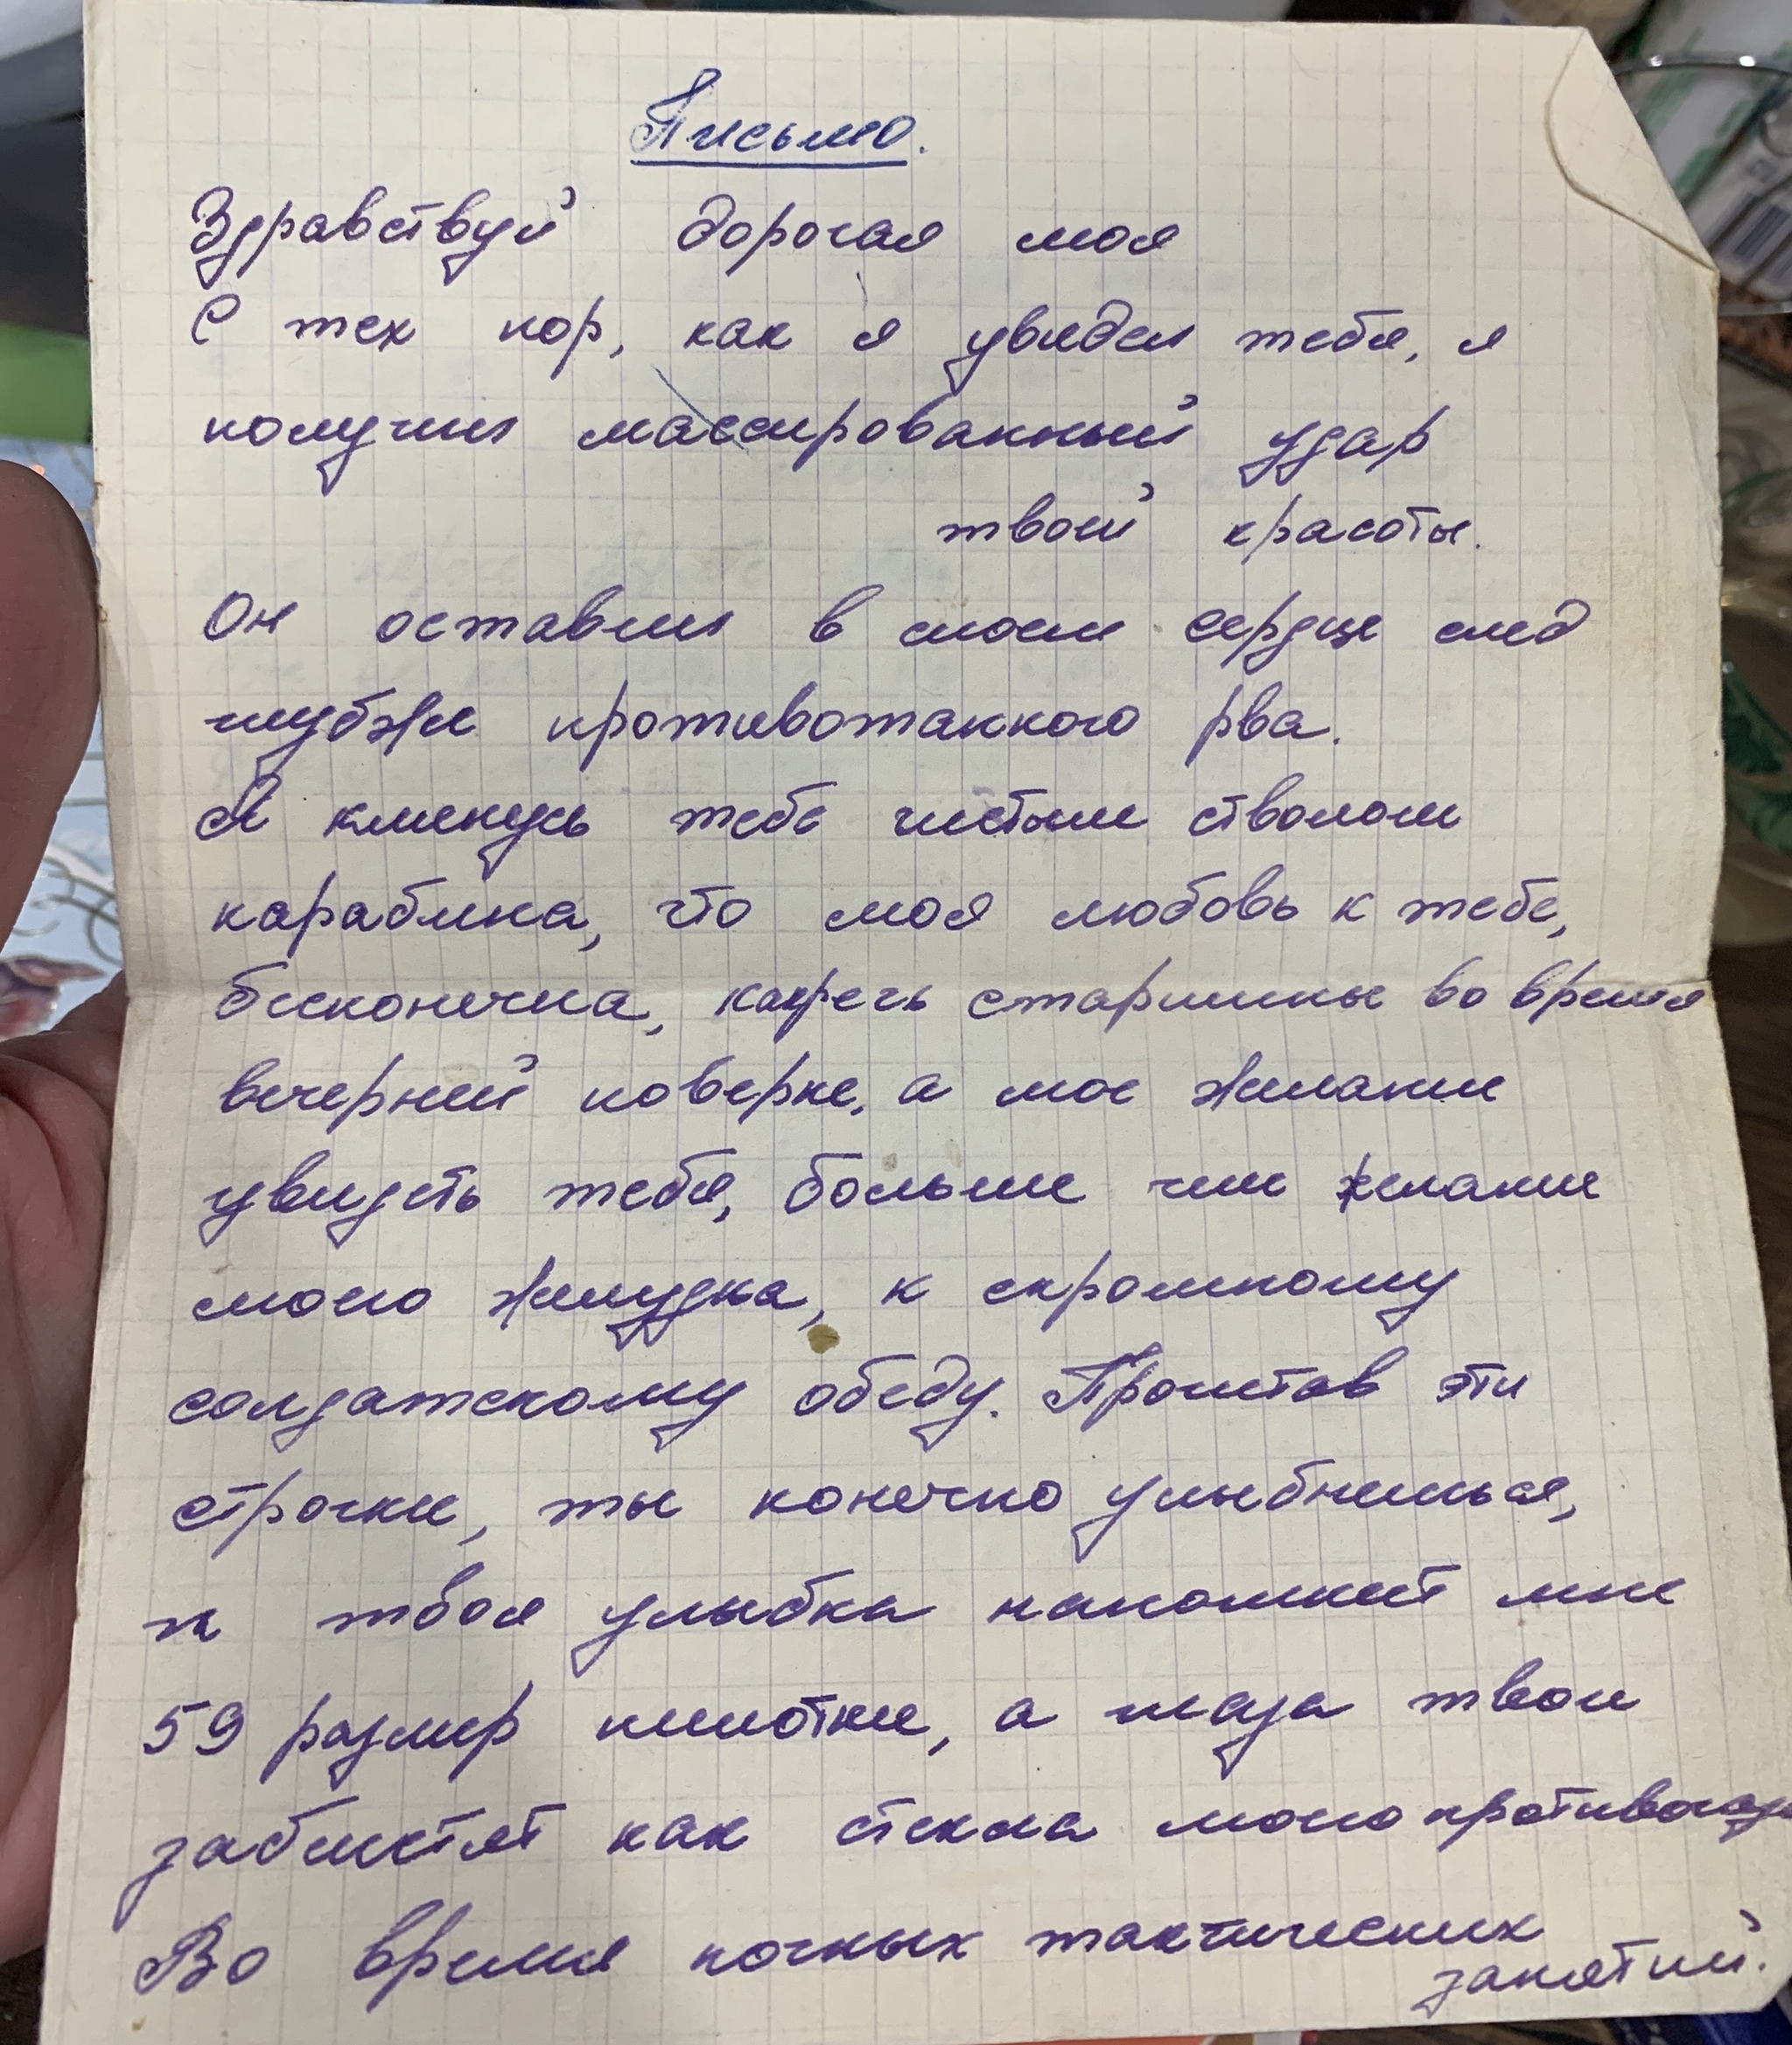 Письмо.
Здравствуй дорогая моя
С тех пор, как я увидел тебя, я
получил массированный удар
твоей красоты.
Он оставил в моем сердце след
глубже противотанкого рва.
Я клянусь тебе чистым стволом
карабина, что моя любовь к тебе,
бесконечна, как речь старшины во время
вечерней поверке, а мое желание
увидеть тебя, больше чем желание
моего желудка, к скромному
солдатскому обеду. Прочитав эти
строчки, ты конечно улыбнешься,
и твоя улыбка напомнит мне
59 размер пилотки, а глаза твои
заблистят как стекла моего противогаза
Во время ночных тактических
занятий.